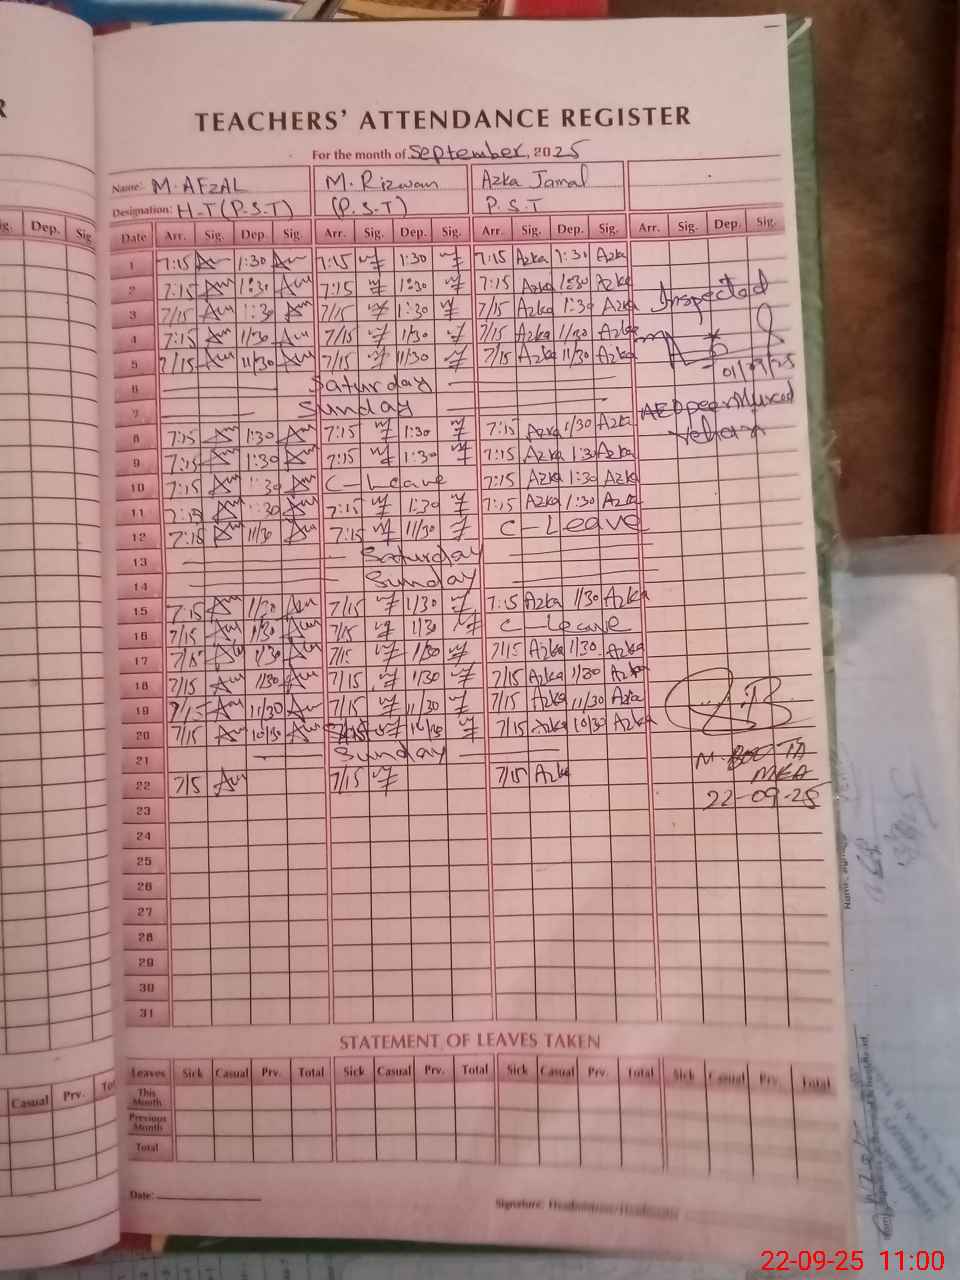 TEACHERS' ATTENDANCE REGISTER
For the month of September, 2025
Name: M. AFZAL M. Rizwan Azka Jamal
Designation: H-T (P.S.T) (P.S.T) P.S.T
Date Arr. Sig. Dep. Sig. Arr. Sig. Dep. Sig. Arr. Sig. Dep. Sig. Arr. Sig. Dep. Sig.
1 7:15 1:30 7:15 1:30 7:15 Azka 1:30 Azka
2 7:15 1:30 7:15 1:30 7:15 Azka 1:30 Azka
Inspected
3 7/15 1:30 7/15 1:30 7/15 Azka 1:30 Azka
4 7:15 11/30 7/15 1/30 7/15 Azka 11/30 Azka
5 7/15 11/30 7/15 11/30 7/15 Azka 11/30 Azka
6 Saturday
7 Sunday
8 7:15 1:30 7:15 1:30 7:15 Azka 1/30 Azka
9 7:15 1:30 7:15 1:30 7:15 Azka 1:30 Azka
10 7:15 1:30 C-Leave 7:15 Azka 1:30 Azka
11 7:15 1:30 7:15 1:30 7:15 Azka 1:30 Azka
12 7:15 11/30 7:15 11/30 C-Leave
13 Saturday
14 Sunday
15 7:15 1/30 7/15 1/30 7:15 Azka 1/30 Azka
16 7/15 1/30 7/15 1/30 C-Leave
17 7/15 1/30 7/15 1/30 7/15 Azka 1/30 Azka
18 7/15 1/30 7/15 1/30 7/15 Azka 1/30 Azka
19 7/15 11/30 7/15 11/30 7/15 Azka 11/30 Azka
20 7/15 10/30 10/30 7/15 Azka 10/30 Azka
21 Sunday
22 7/15 7/15 7/15 Azka
MEA
22-09-25
23
24
25
26
27
28
29
30
31
STATEMENT OF LEAVES TAKEN
Leaves Sick Casual Prv. Total Sick Casual Prv. Total Sick Casual Prv. Total Sick Casual Prv. Total
This Month
Previous Month
Total
Date:
Signature: Headmistress/Headmaster
Dep. Sig
Casual Prv.
22-09-25 11:00